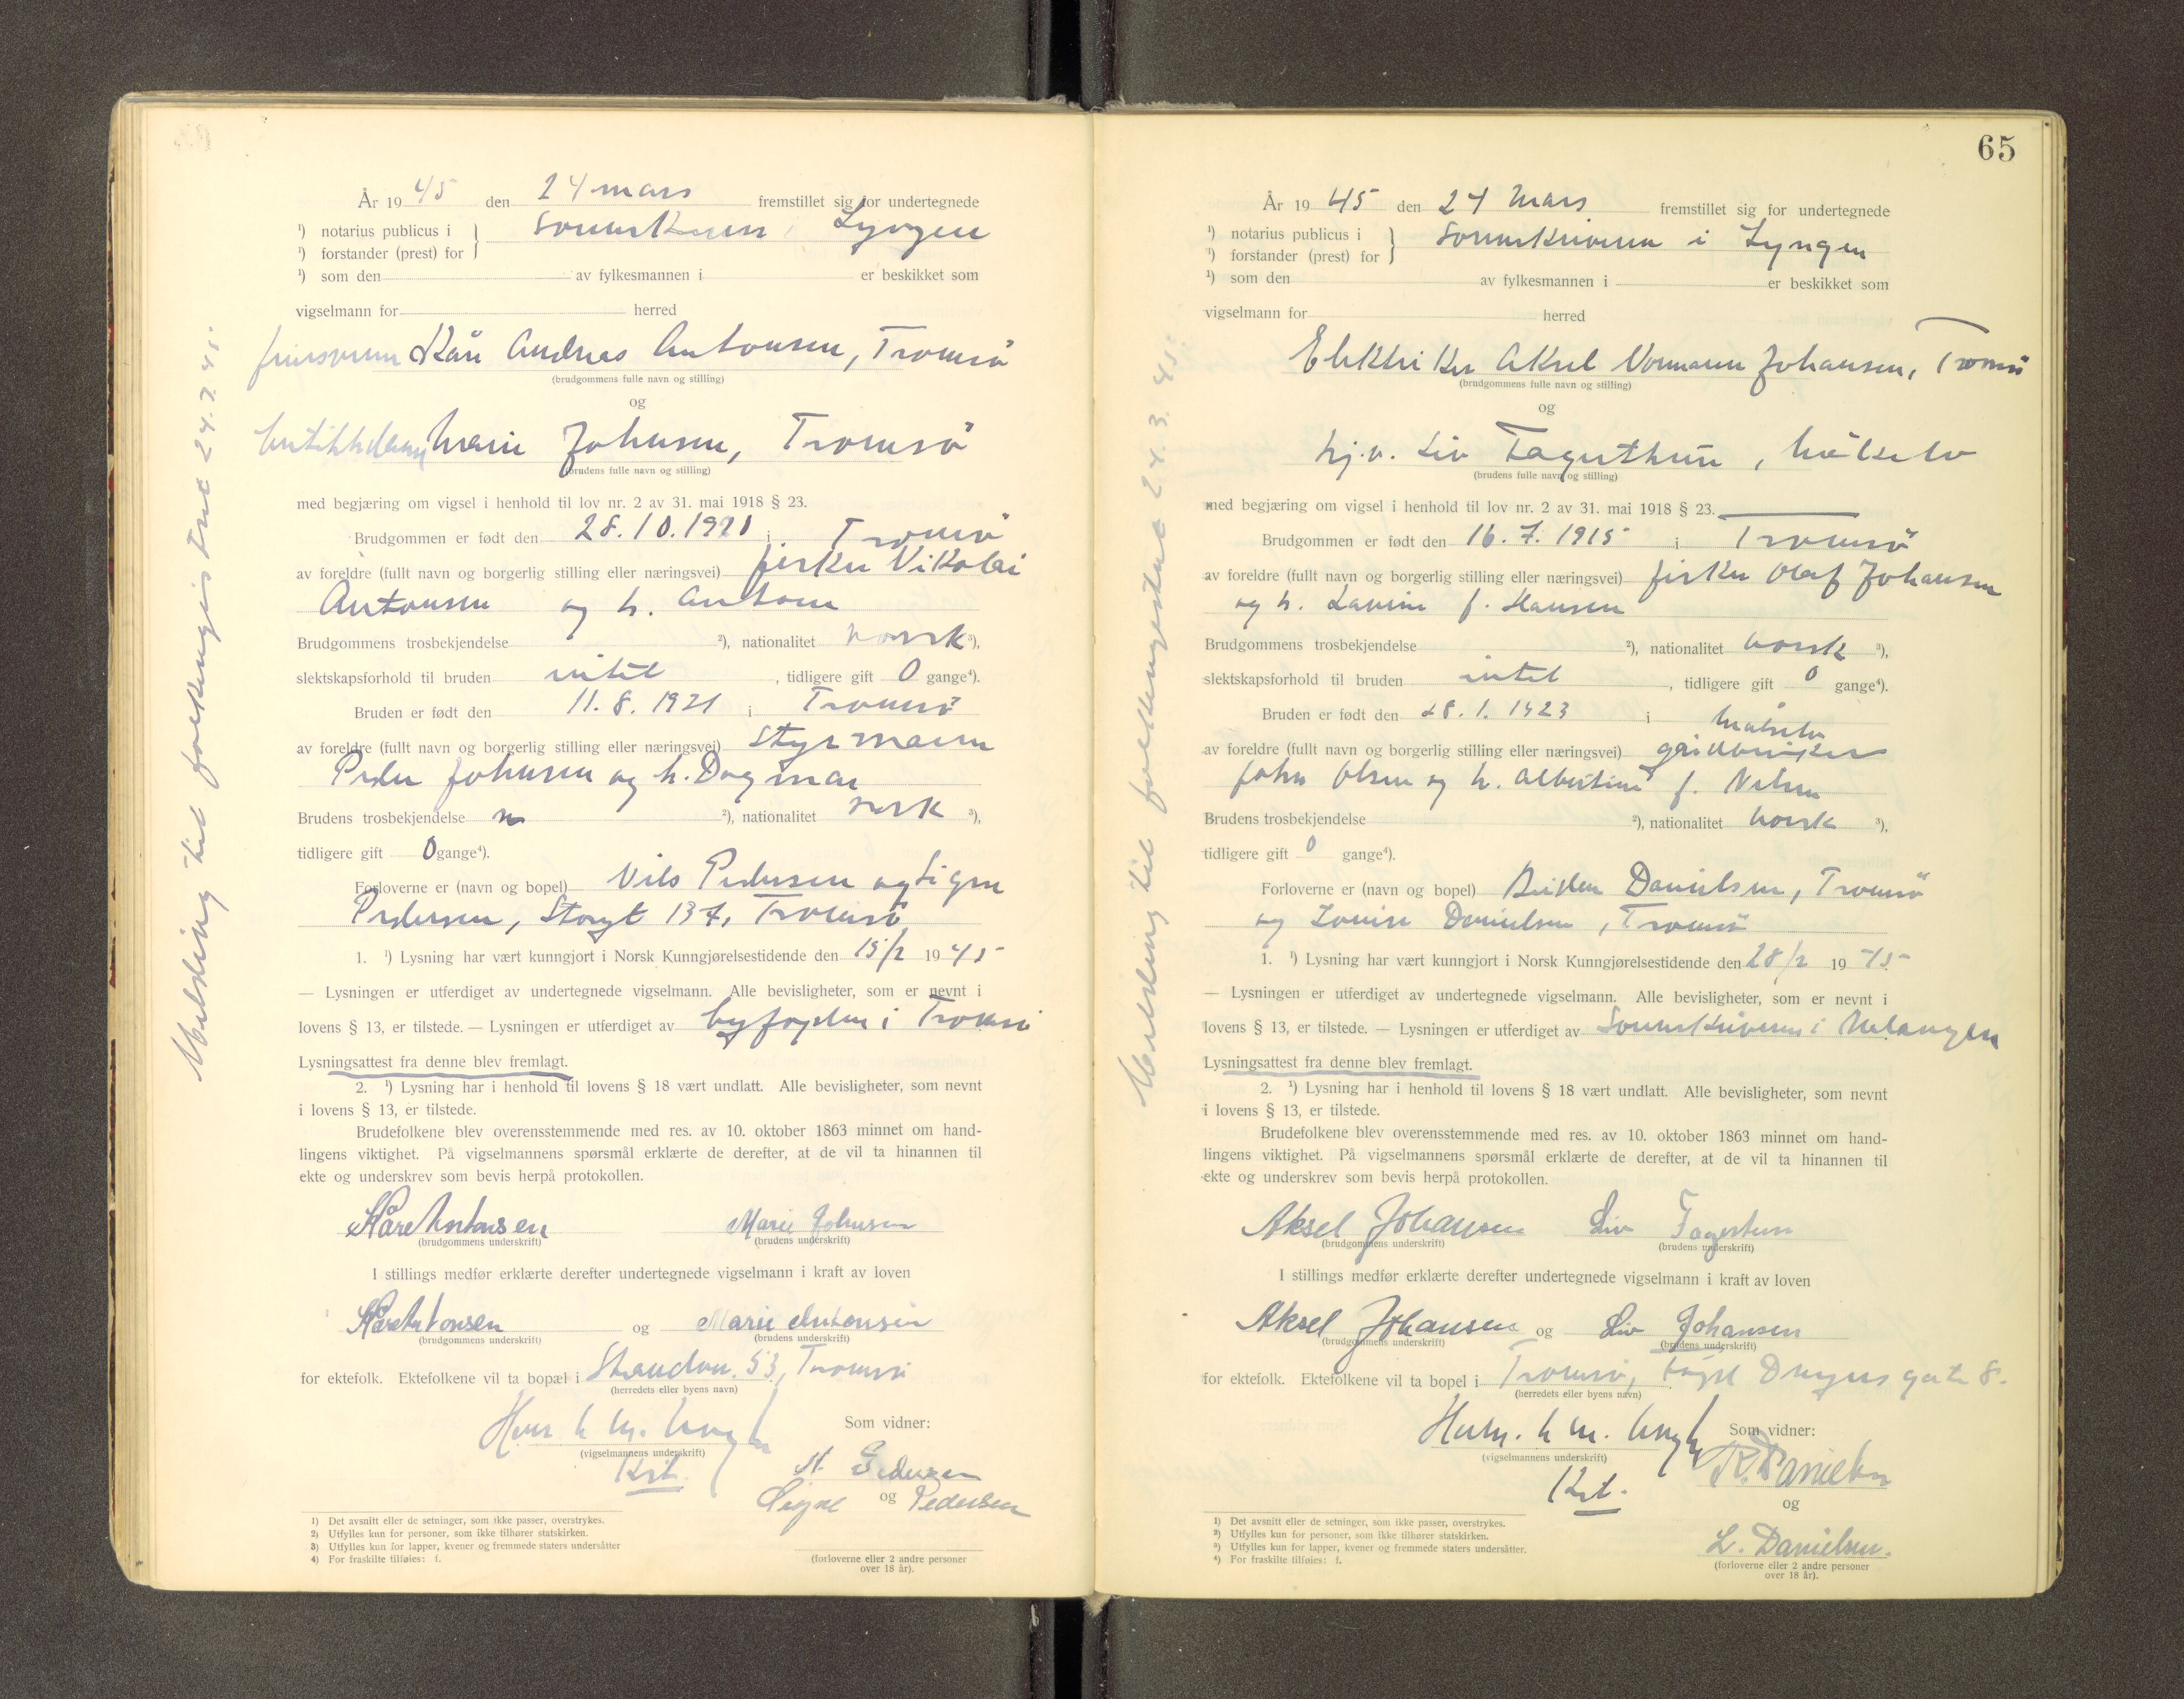 År 1945 den 24 mars fremstillet sig for undertegnede
¹) notarius publicus i
¹) forstander (prest) for
Lyngen
¹) som den av fylkesmannen i er beskikket som
vigselmann for herred
Kåre Andreas Antonsen, Tromsö
(brudgommens fulle navn og stilling)
og
Marie Johnsen, Tromsö
(brudens fulle navn og stilling)
med begjæring om vigsel i henhold til lov nr. 2 av 31. mai 1918 § 23.
Brudgommen er født den 28.10.1920 i Tromsö
av foreldre (fullt navn og borgerlig stilling eller næringsvei) fisker Nikolai
Antonsen og h. Antona
Brudgommens trosbekjendelse ²), nationalitet norsk ³),
slektskapsforhold til bruden intet, tidligere gift 0 gange⁴).
Bruden er født den 11.8.1921 i Tromsö
av foreldre (fullt navn og borgerlig stilling eller næringsvei) styrmann
Peder Johnsen og h. Dagmar
Brudens trosbekjendelse ²), nationalitet norsk ³),
tidligere gift 0 gange⁴).
Forloverne er (navn og bopel) Nils Pedersen og Signe
Pedersen, Storgt 137, Tromsö
1. ¹) Lysning har vært kunngjort i Norsk Kunngjørelsestidende den 15/2 1945
— Lysningen er utferdiget av undertegnede vigselmann. Alle bevisligheter, som er nevnt i
lovens § 13, er tilstede. — Lysningen er utferdiget av byfogden i Tromsö
Lysningsattest fra denne blev fremlagt.
2. ¹) Lysning har i henhold til lovens § 18 vært undlatt. Alle bevisligheter, som nevnt
i lovens § 13, er tilstede.
Brudefolkene blev overensstemmende med res. av 10. oktober 1863 minnet om hand-
lingens viktighet. På vigselmannens spørsmål erklærte de derefter, at de vil ta hinannen til
ekte og underskrev som bevis herpå protokollen.
Kåre Antonsen Marie Johnsen
(brudgommens underskrift) (brudens underskrift)
I stillings medfør erklærte derefter undertegnede vigselmann i kraft av loven
Kåre Antonsen og Marie Antonsen
(brudgommens underskrift) (brudens underskrift)
for ektefolk. Ektefolkene vil ta bopæl i Strandvn. 53, Tromsö
(herredets eller byens navn)
Som vidner:
(vigselmannens underskrift)
N. Pedersen
og
Signe Pedersen
1) Det avsnitt eller de setninger, som ikke passer, overstrykes.
2) Utfylles kun for personer, som ikke tilhører statskirken.
3) Utfylles kun for lapper, kvener og fremmede staters undersåtter
4) For fraskilte tilføies: f.
(forloverne eller 2 andre personer
over 18 år).
Melding til folkeregistret 24.3.45.
65
År 1945 den 24 Mars fremstillet sig for undertegnede
¹) notarius publicus i
¹) forstander (prest) for
Sorenskriveren i Lyngen
¹) som den av fylkesmannen i er beskikket som
vigselmann for herred
Elektriker Aksel Normann Johansen, Tromsö
(brudgommens fulle navn og stilling)
og
hj.v. Liv Fagertun, Målselv
(brudens fulle navn og stilling)
med begjæring om vigsel i henhold til lov nr. 2 av 31. mai 1918 § 23.
Brudgommen er født den 16.7.1915 i Tromsö
av foreldre (fullt navn og borgerlig stilling eller næringsvei) fisker Olaf Johansen
og h. f. Hansen
Brudgommens trosbekjendelse ²), nationalitet norsk ³),
slektskapsforhold til bruden intet, tidligere gift 0 gange⁴).
Bruden er født den 28.1.1923 i Målselv
av foreldre (fullt navn og borgerlig stilling eller næringsvei) gårdbruker
John Olsen og h. Albertine f. Nilsen
Brudens trosbekjendelse ²), nationalitet norsk ³),
tidligere gift 0 gange⁴).
Forloverne er (navn og bopel) Danielsen, Tromsö
og Louise Danielsen, Tromsö
1. ¹) Lysning har vært kunngjort i Norsk Kunngjørelsestidende den 28/2 1945
— Lysningen er utferdiget av undertegnede vigselmann. Alle bevisligheter, som er nevnt i
lovens § 13, er tilstede. — Lysningen er utferdiget av Sorenskriveren i Malangen
Lysningsattest fra denne blev fremlagt.
2. ¹) Lysning har i henhold til lovens § 18 vært undlatt. Alle bevisligheter, som nevnt
i lovens § 13, er tilstede.
Brudefolkene blev overensstemmende med res. av 10. oktober 1863 minnet om hand-
lingens viktighet. På vigselmannens spørsmål erklærte de derefter, at de vil ta hinannen til
ekte og underskrev som bevis herpå protokollen.
Aksel Johansen Liv Fagertun
(brudgommens underskrift) (brudens underskrift)
I stillings medfør erklærte derefter undertegnede vigselmann i kraft av loven
Aksel Johansen og Liv Johansen
(brudgommens underskrift) (brudens underskrift)
for ektefolk. Ektefolkene vil ta bopel i Tromsö, gate 8.
(herredets eller byens navn)
Som vidner:
(vigselmannens underskrift)
R. Danielsen
og
L. Danielsen.
1) Det avsnitt eller de setninger, som ikke passer, overstrykes.
2) Utfylles kun for personer, som ikke tilhører statskirken.
3) Utfylles kun for lapper, kvener og fremmede staters undersåtter.
4) For fraskilte tilføies: f.
(forloverne eller 2 andre personer
over 18 år).
Melding til folkeregistret 24.3.45.